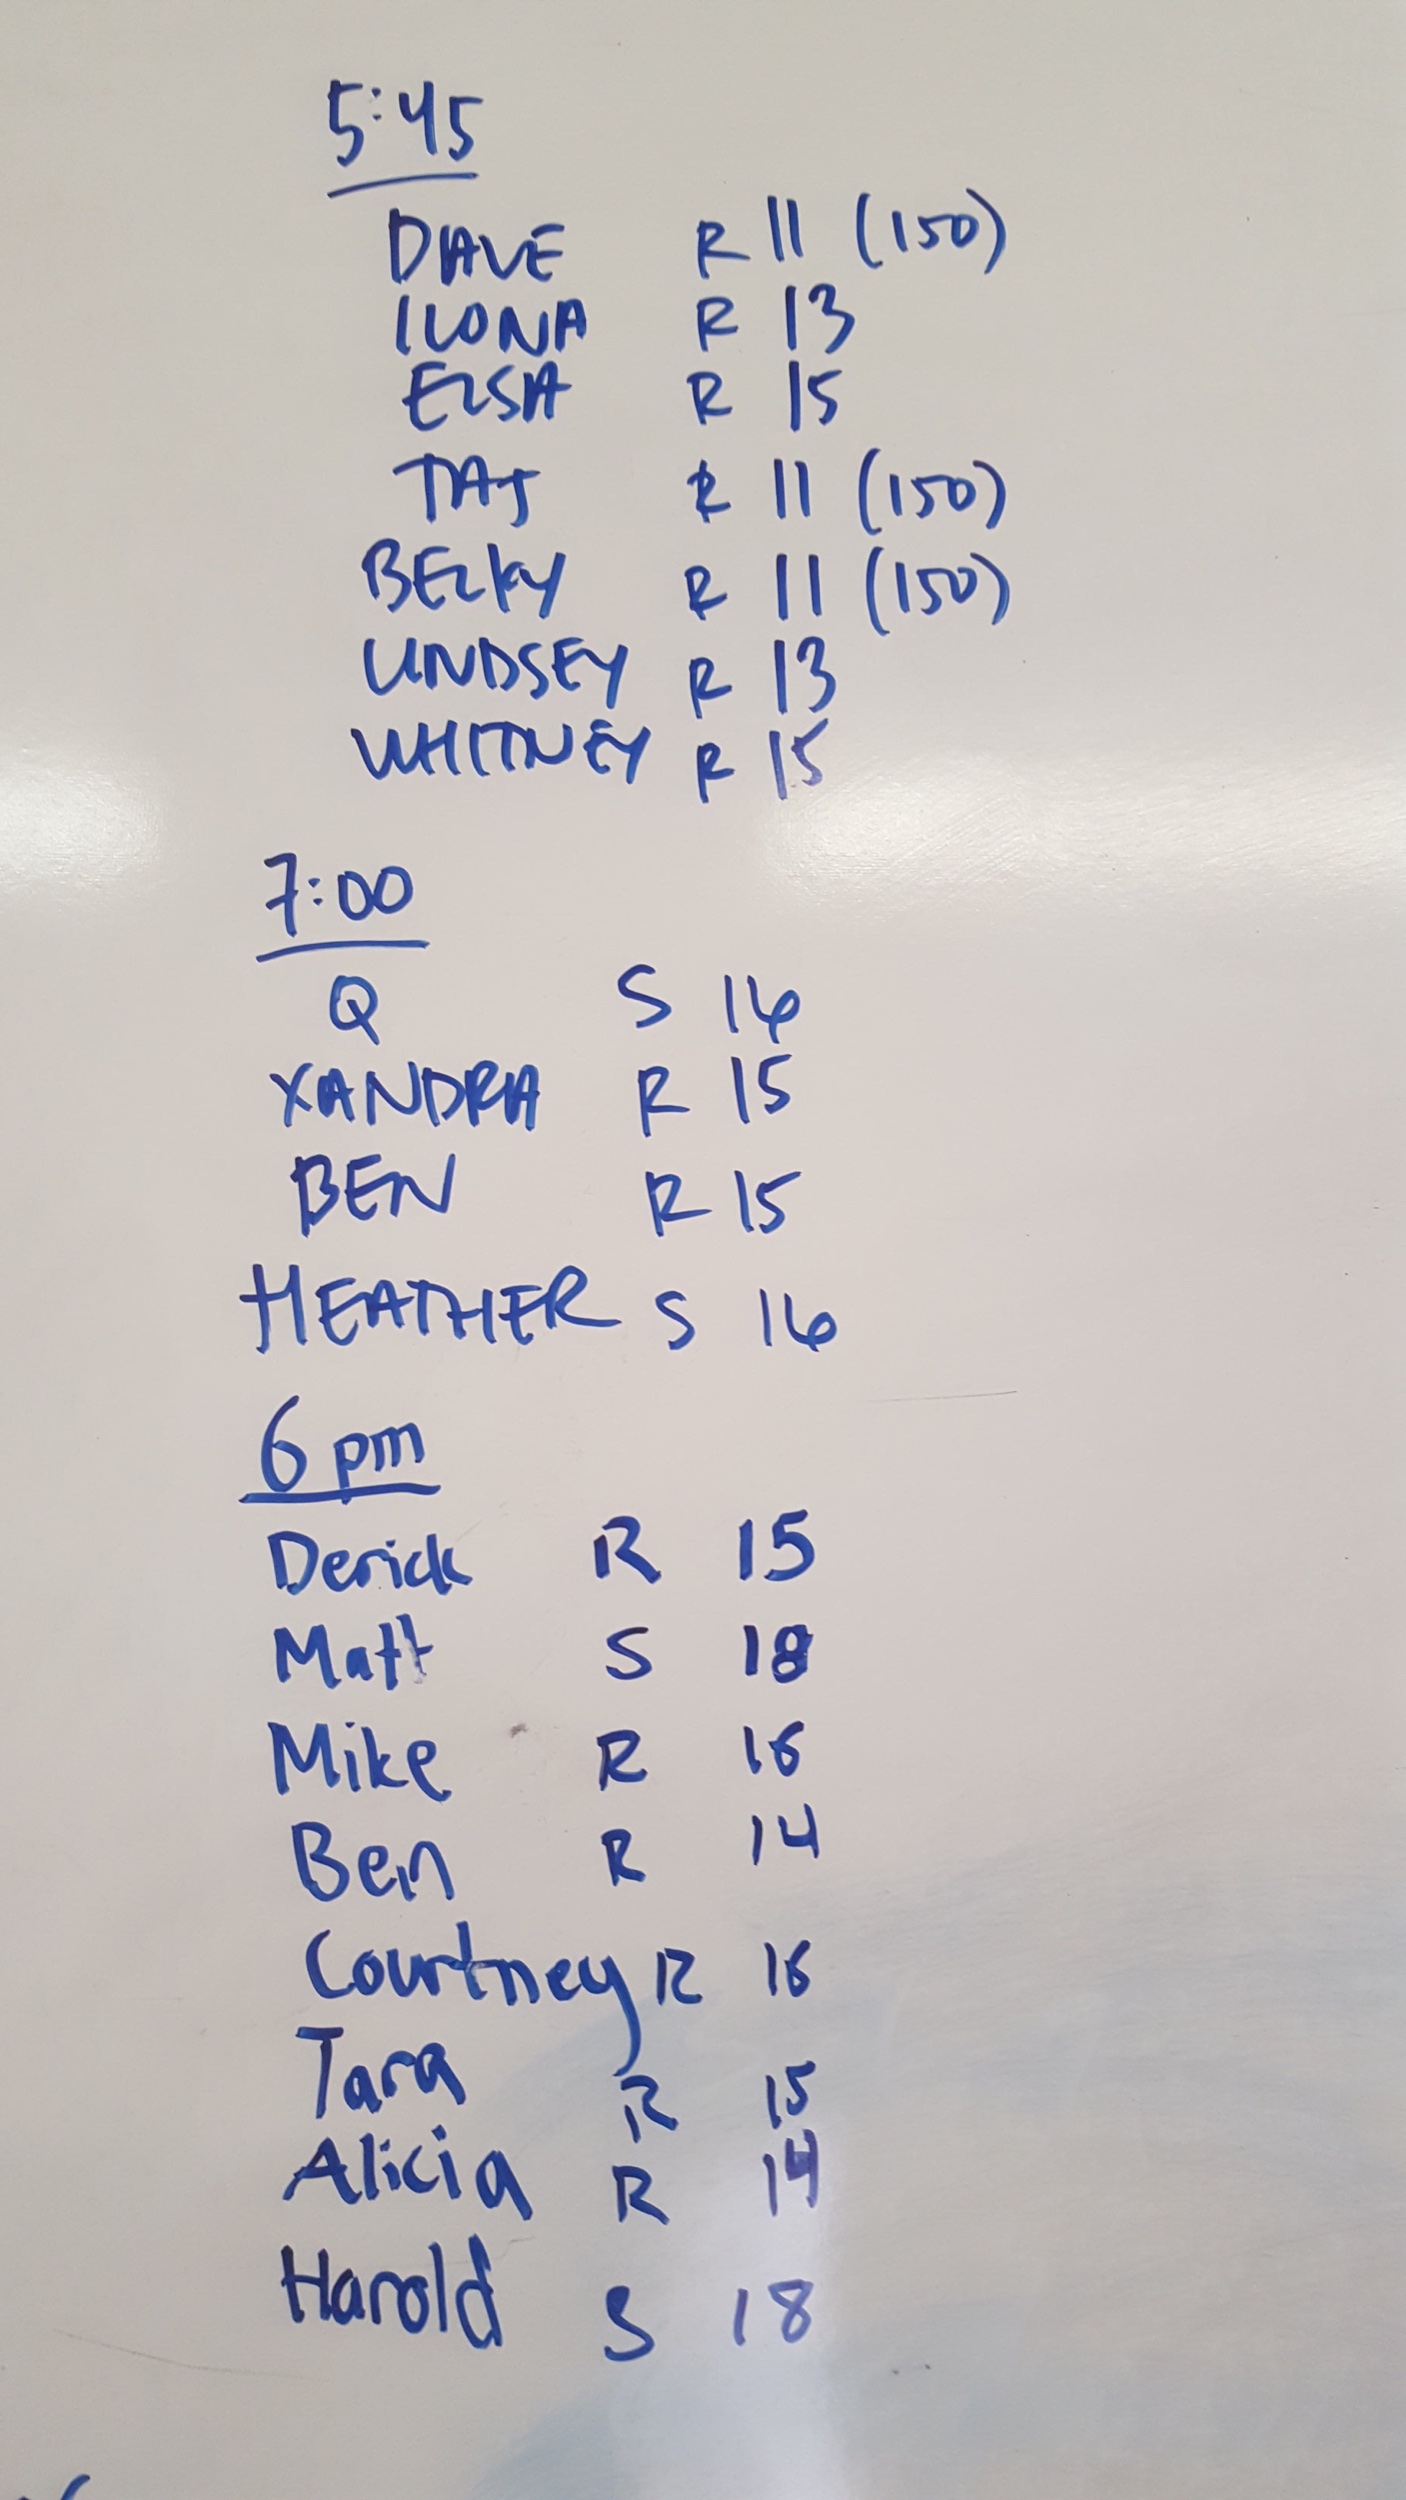 5:45
DAVE R 11 (150)
ILONA R 13
ELSA R 15
TAJ R 11 (150)
BECKY R 11 (150)
LINDSEY R 13
WHITNEY R 15
7:00
Q S 16
XANDRA R 15
BEN R 15
HEATHER S 16
6 pm
Derick R 15
Matt S 18
Mike R 16
Ben R 14
Courtney R 16
Tara R 15
Alicia R 14
Harold S 18